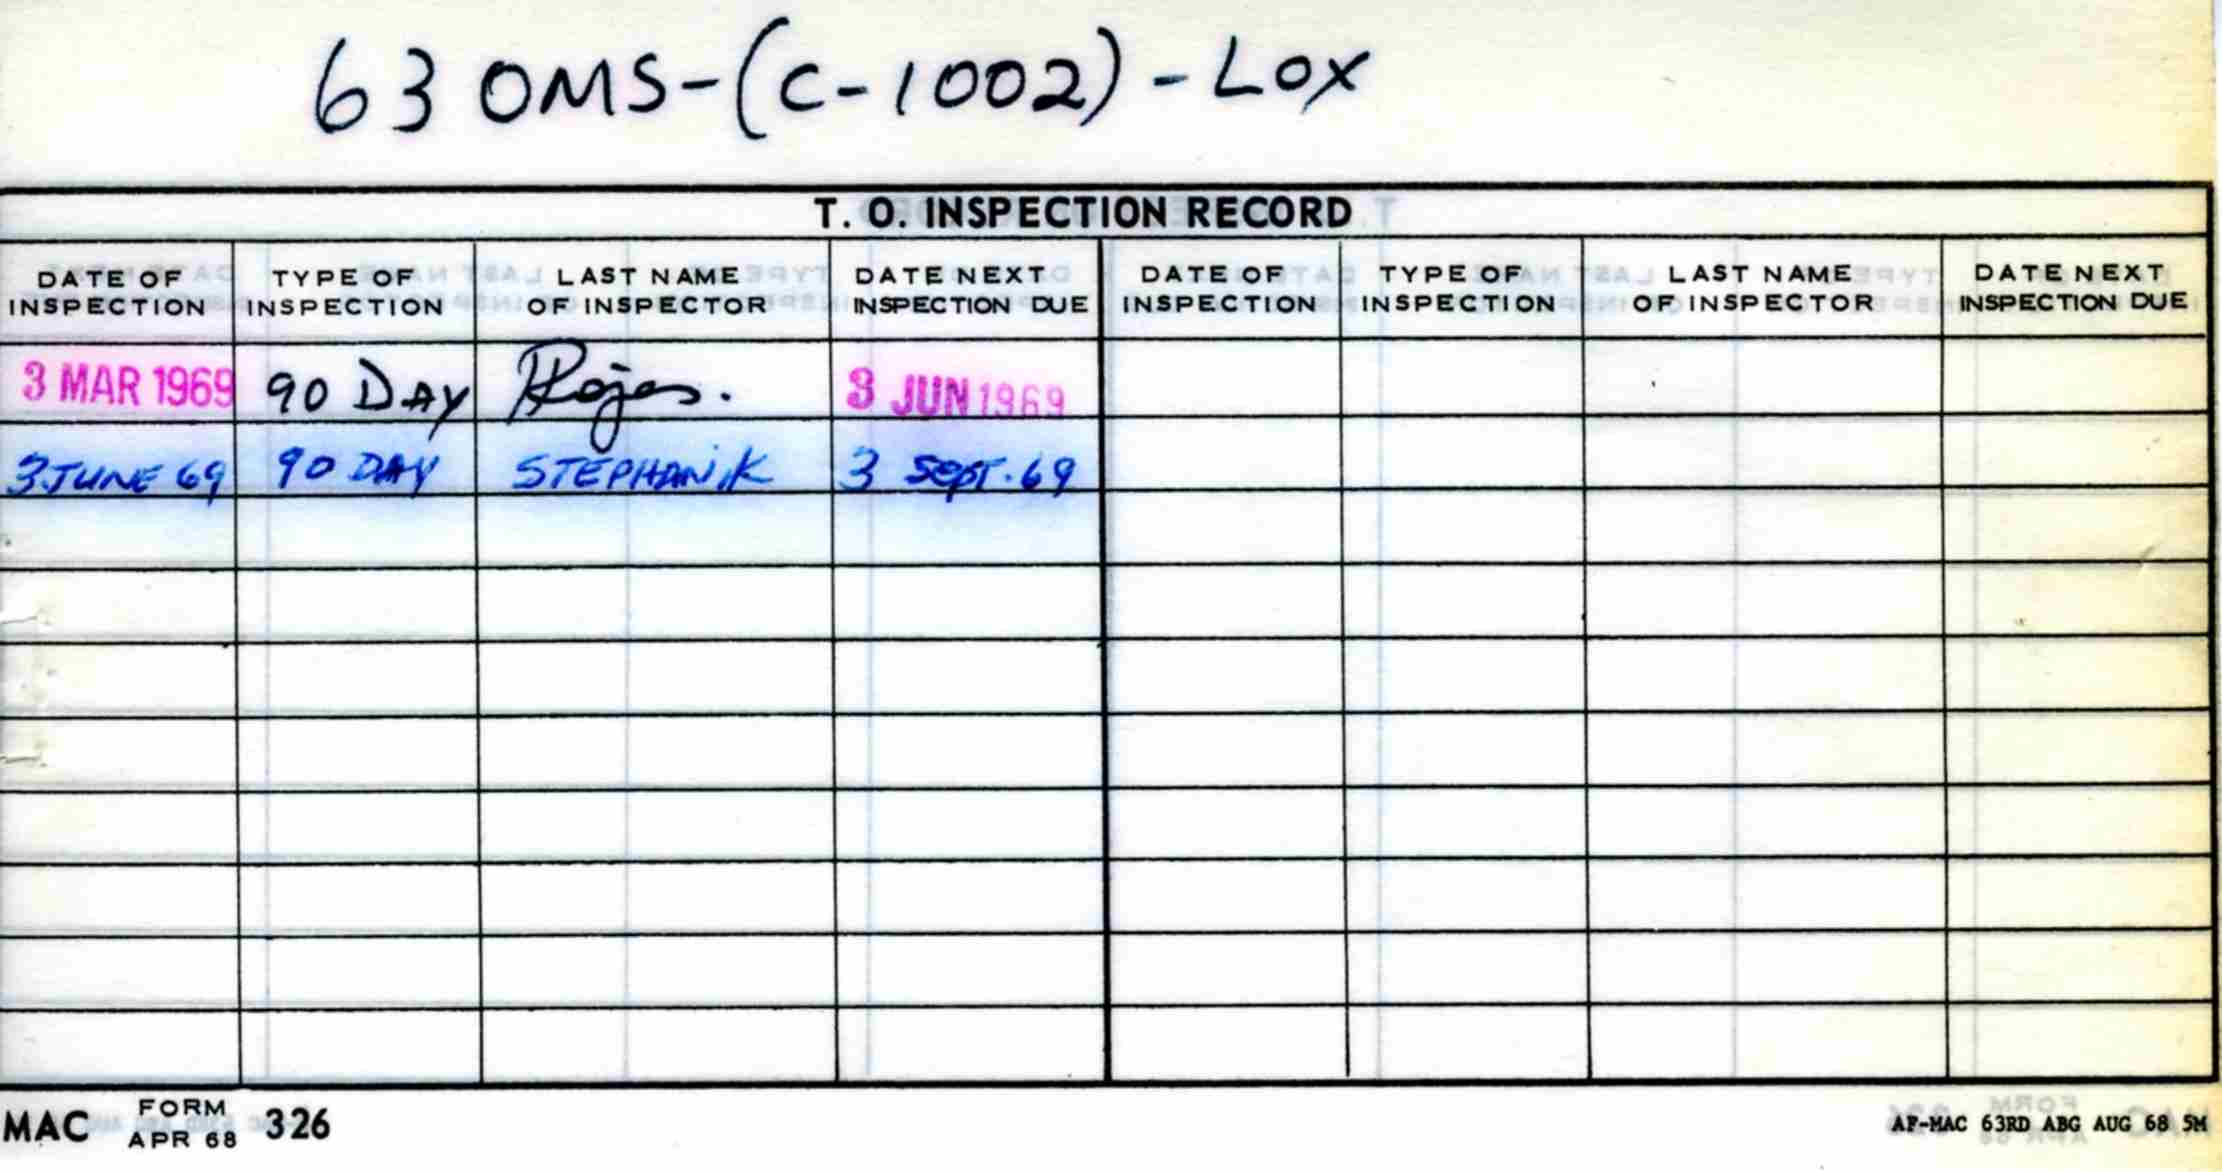 63 OMS-(C-1002)-LOX
T. O. INSPECTION RECORD
DATE OF INSPECTION TYPE OF INSPECTION LAST NAME OF INSPECTOR DATE NEXT INSPECTION DUE DATE OF INSPECTION TYPE OF INSPECTION LAST NAME OF INSPECTOR DATE NEXT INSPECTION DUE
3 MAR 1969 90 DAY Rojas. 3 JUN 1969
3 JUNE 69 90 DAY STEPHANIK 3 SEPT. 69
MAC FORM APR 68 326 AF-MAC 63RD ABG AUG 68 5M